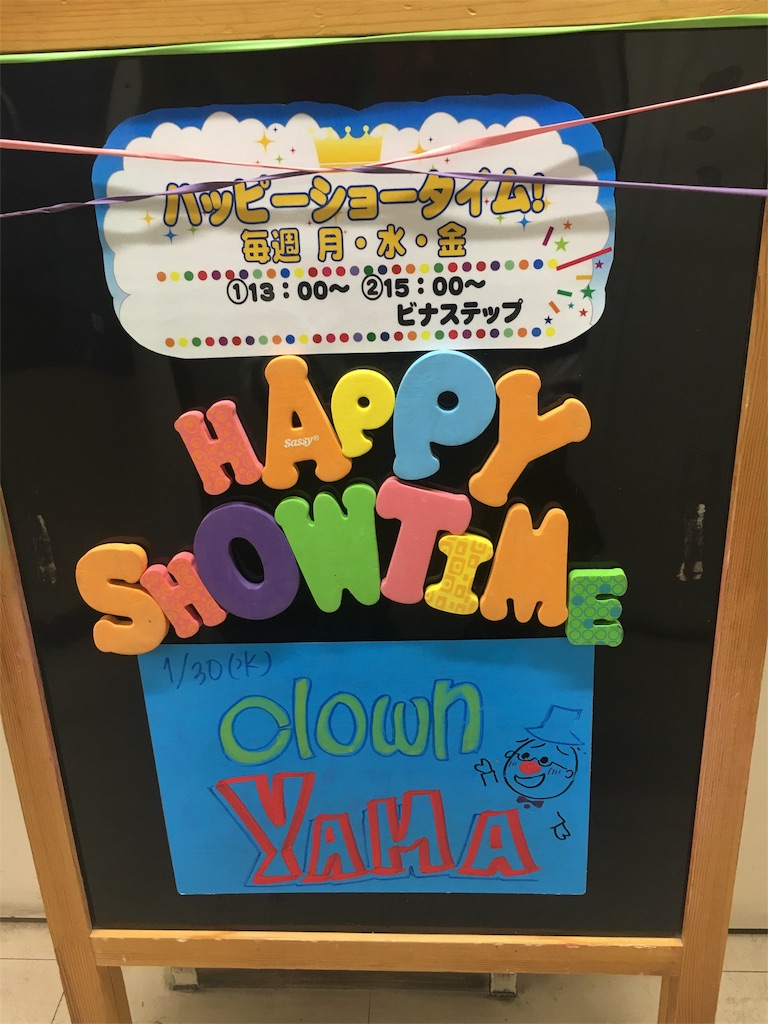 ハッピーショータイム!
毎週 月・水・金
①13:00～ ②15:00～
ビナステップ
HAPPY
Sassy®
SHOWTIME
1/30(水)
clown
YAMA